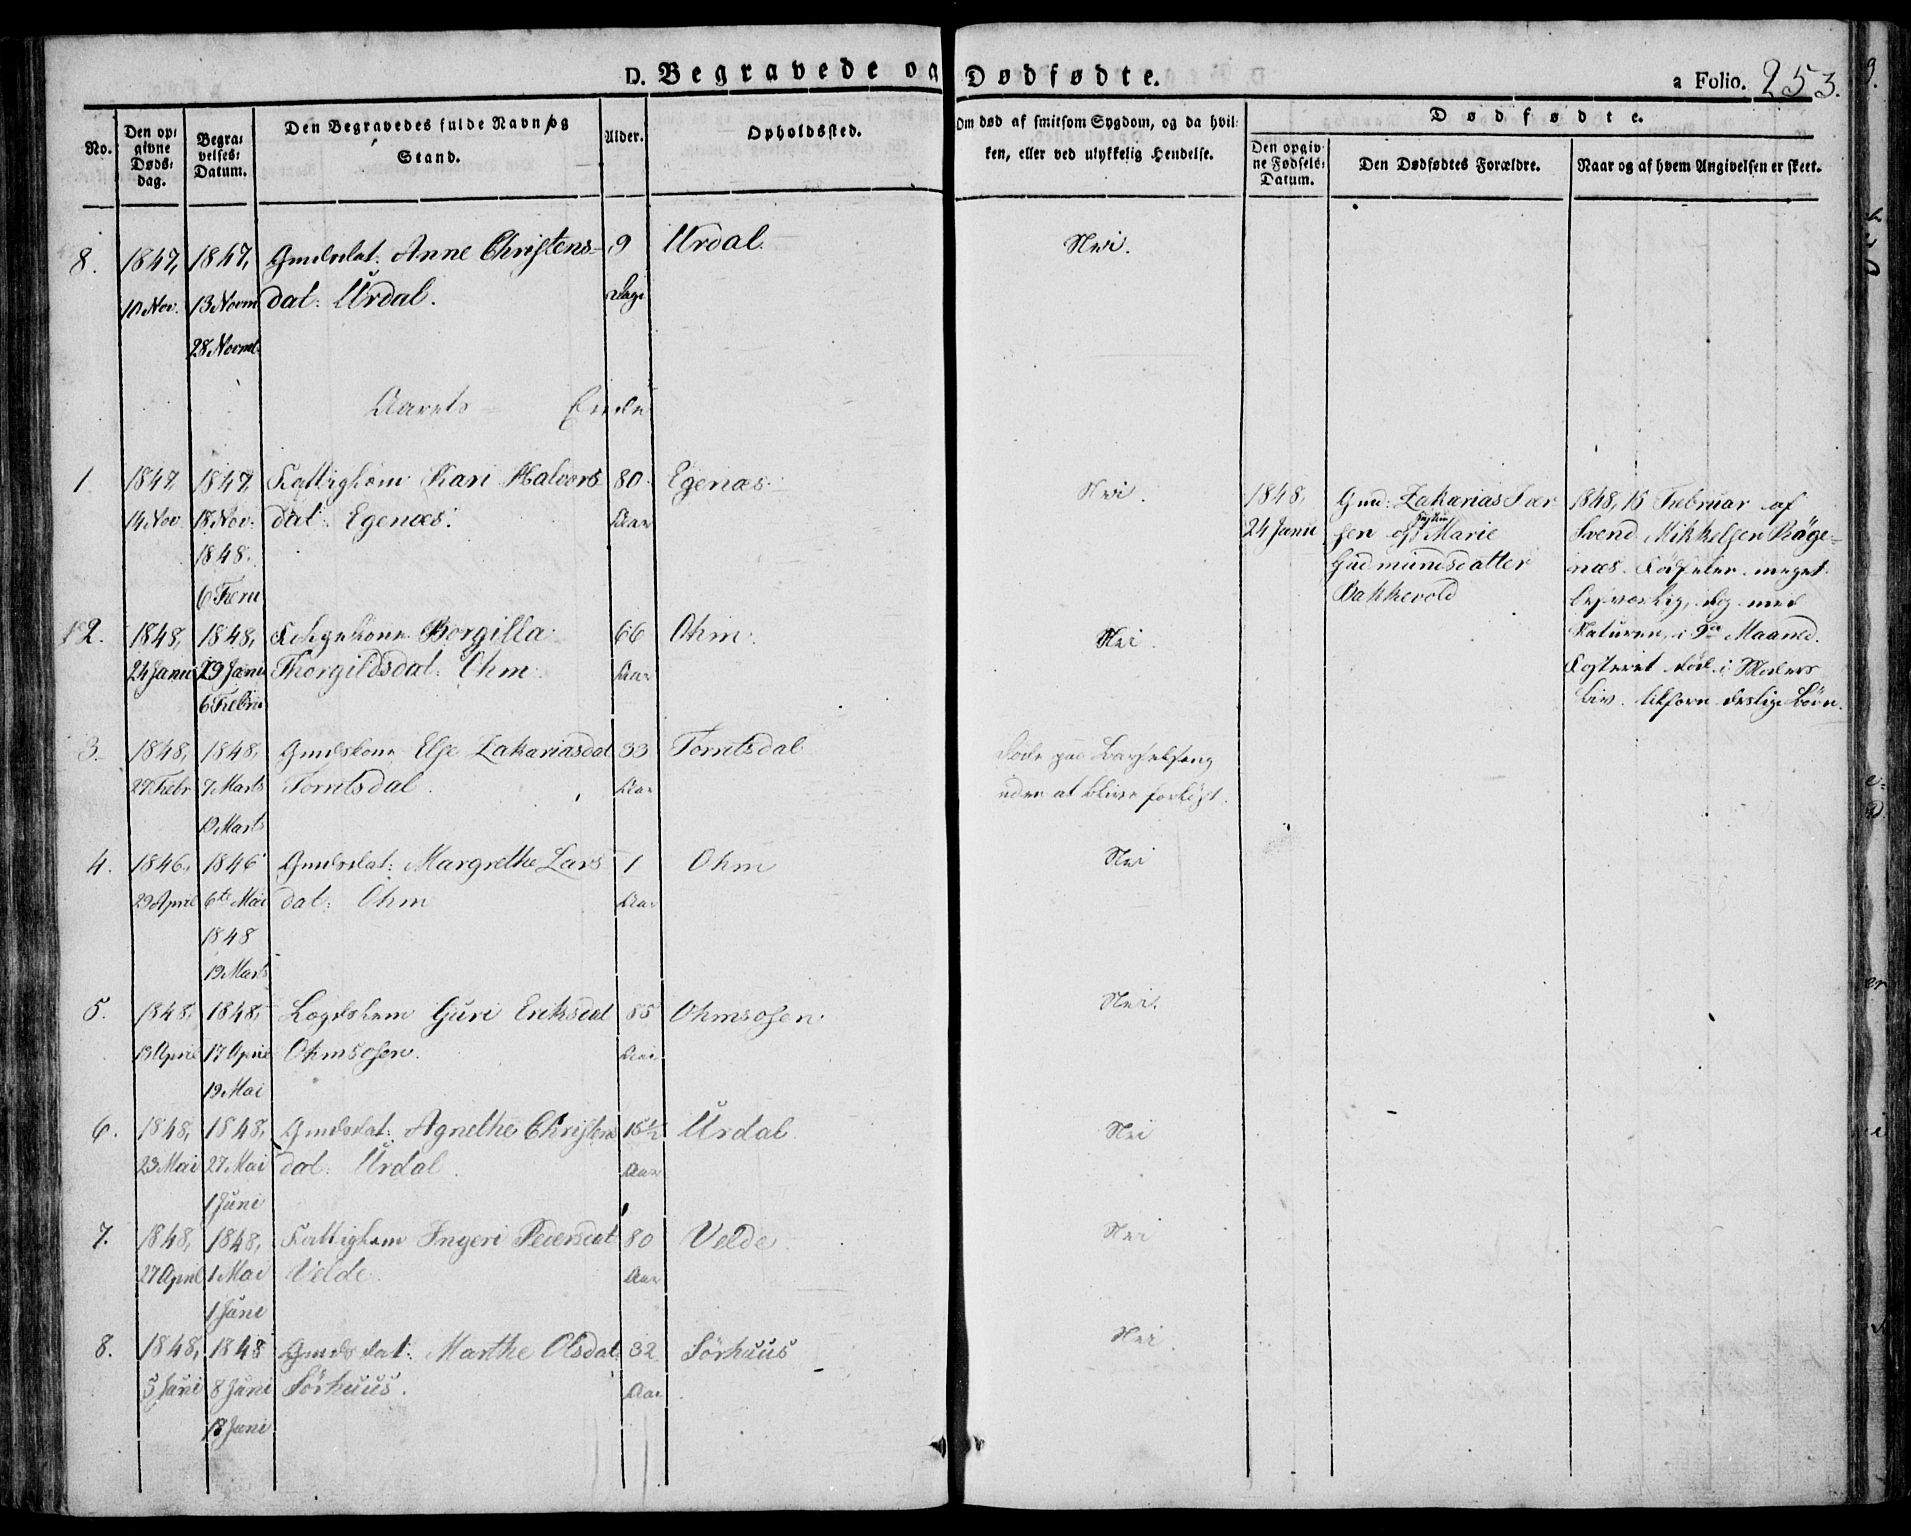 D. Begravede og Dødfødte.
a Folio. 253.
No.
Den opgivne Dødsdag.
Begravelses-Datum.
Den Begravedes fulde Navn og Stand.
Alder.
Opholdssted.
Om død af smitsom Sygdom, og da hvilken, eller ved ulykkelig Hendelse.
Dødfødte.
Den opgivne Fødsels-Datum.
Den Dødfødtes Forældre.
Naar og af hvem Angivelsen er skeet.
8. 1847, 1847, Gmdsdat: Anne Christens- 9 Urdal Nei.
10 Nov. 13 Novm dat: Urdal. Dage
28 Novmb.
Aarets Ende
1 1847 1847 Fattiglem Kari Halvors 80 Egenæs Nei.
14 Nov 18 Nov. dat: Egenæs. Aar
1848.
6 Febru
2. 1848, 1848, Borgilla 66 Ohm. Nei.
24 Janu 29 Janu Thorgildsdat: Ohm Aar
6 Febru
3. 1848, 1848, Gmdskone Else Zakariasdat 33 Tomtsdal Døde paa Barselseng
27 Febr 7 Marts Tomtsdal. Aar uden at blive forløst.
19 Marts
4. 1846, 1846 Gmdsdat: Margrethe Lars 1 Ohm Nei
29 April 6te Mai dat: Ohm Aar
1848
19 Marts
5. 1848, 1848, Lægdslem Guri Eriksdat 85 Ohmsosen. Nei.
13 April 17 April Ohmsosen. Aar
19 Mai
6. 1848, 1848, Gmdsdat: Agnethe Christens 15½ Urdal Nei
23 Mai 27 Mai dat: Urdal. Aar
1 Juni
7. 1848, 1848, Fattiglem Ingeri Pedersdat 80 Velde Nei
27 April 1 Mai Velde. Aar
1 Juni
8. 1848, 1848 Gmdsdat: Marthe Olsdat 32 Sörhuus Nei.
5 Juni 8 Juni Sörhuus. Aar
18 Juni
1848, Gmd: Zakarias 1848, 15 Februar af
24 Janu sen og Hustru Marie Svend Mikkelsen Røge-
Gudmundsdatter næs. Fødselen meget
Bakkevold besværlig, dog med
Naturen, i 9de Maaned.
Fosteret død i Moders
Liv. tilforn deslige Børn.